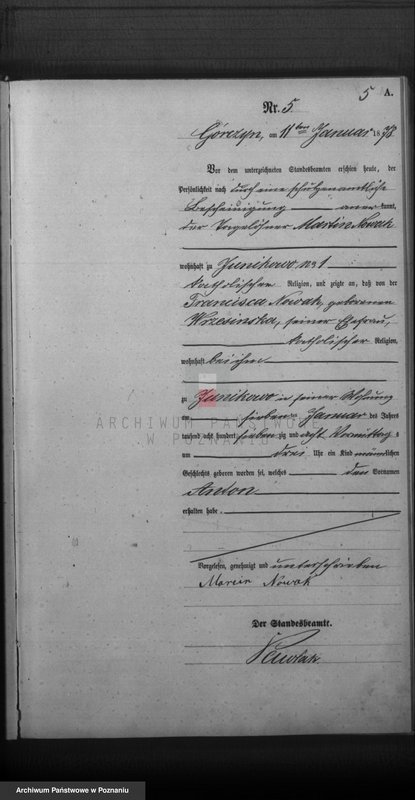 5 A.
Nr. 5.
Górczyn, am 11ten Januar 1878
Vor dem unterzeichneten Standesbeamten erschien heute, der
Persönlichkeit nach durch eine schulzenamtliche
Bescheinigung anerkannt,
der Tagelöhner Martin Nowak
wohnhaft zu Junikowo No 1
katholischer Religion, und zeigte an, daß von der
Francisca Nowak, geborenen
Wrzesinska, seiner Ehefrau,
katholischer Religion,
wohnhaft bei ihm
zu Junikowo in seiner Wohnung
am sieben ten Januar des Jahres
tausend acht hundert siebenzig und acht Vormittags
um drei Uhr ein Kind männlichen
Geschlechts geboren worden sei, welches den Vornamen
Anton
erhalten habe.
Vorgelesen, genehmigt und unterschrieben
Marcin Nowak
Der Standesbeamte.
ARCHIWUM PAŃSTWOWE
W POZNANIU
Archiwum Państwowe w Poznaniu